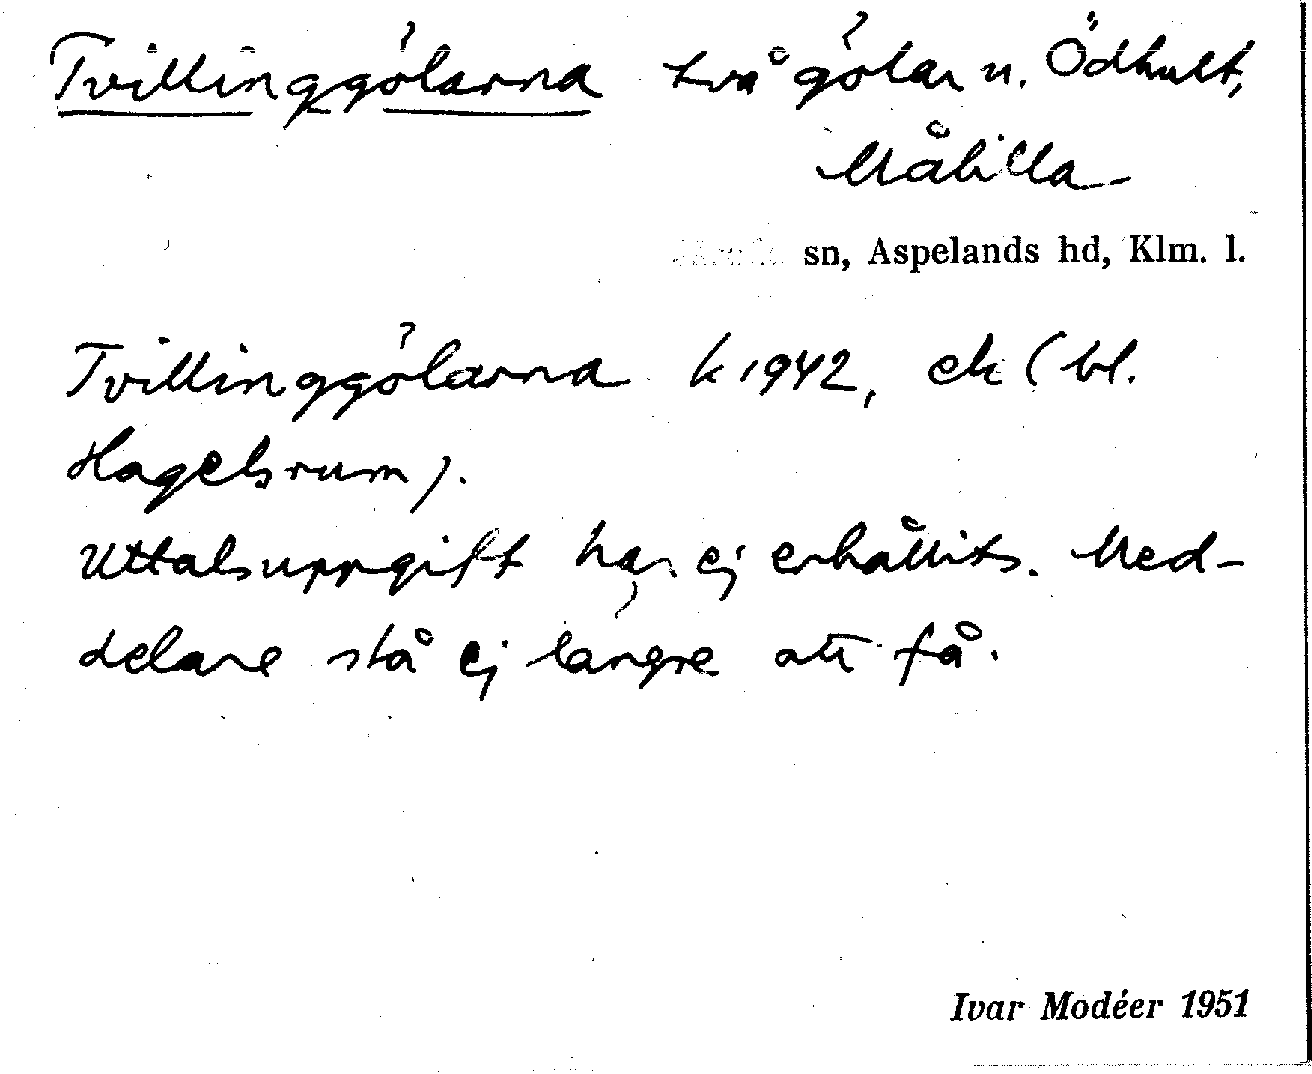 Tvillinggölarna två gölar n. Ödhult,
Målilla
sn, Aspelands hd, Klm. l.
Tvillinggölarna k 1942, ek (bl.
Hagelsrum).
Uttalsuppgift har ej erhållits. Med-
delare stå ej längre att få.
Ivar Modéer 1951